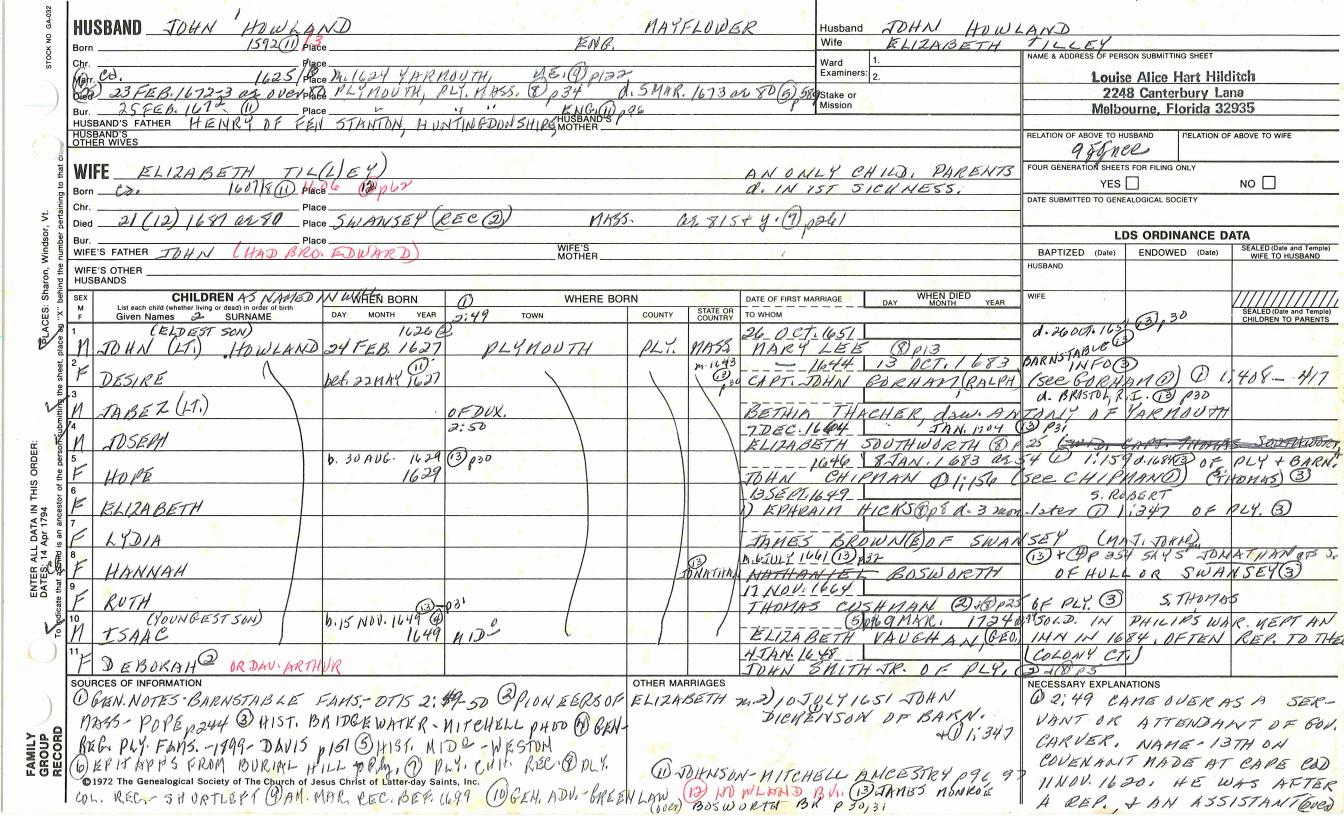 STOCK NO GA-032
HUSBAND JOHN HOWLAND MAYFLOWER
Born 1592 (11) 13 Place ENG.
Chr. Place
Marr. ca. 1625/6 Place m. 1624 YARMOUTH, (9) p122
Died 23 FEB. 1672-3 ae over 80 Place PLYMOUTH, PLY. MASS. (8) p34 d. 5 MAR. 1673 ae 80 (5)
Bur. 25 FEB. 1672 (11) Place " " " ENG. (11) p96
HUSBAND'S FATHER HENRY OF FEN STANTON, HUNTINGDONSHIRE, HUSBAND'S MOTHER
HUSBAND'S OTHER WIVES
WIFE ELIZABETH TIL(L)EY AN ONLY CHILD. PARENTS
Born ca. 1607/8 (11) Place (12) p62 d. IN 1ST SICKNESS.
Chr. Place
Died 21 (12) 1687 ae 80 Place SWANSEY (REC (2)) MASS. ae 81st y. (7) p261
Bur. Place
WIFE'S FATHER JOHN (HAD BRO. EDWARD) WIFE'S MOTHER
WIFE'S OTHER HUSBANDS
Husband JOHN HOWLAND
Wife ELIZABETH TILLEY
Ward Examiners: 1.
2.
Stake or Mission
NAME & ADDRESS OF PERSON SUBMITTING SHEET
Louise Alice Hart Hilditch
2248 Canterbury Lana
Melbourne, Florida 32935
RELATION OF ABOVE TO HUSBAND RELATION OF ABOVE TO WIFE
FOUR GENERATION SHEETS FOR FILING ONLY
YES NO
DATE SUBMITTED TO GENEALOGICAL SOCIETY
LDS ORDINANCE DATA
BAPTIZED (Date) ENDOWED (Date) SEALED (Date and Temple) WIFE TO HUSBAND
HUSBAND
WIFE
SEALED (Date and Temple) CHILDREN TO PARENTS
SEX M F CHILDREN AS NAMED IN WILL WHEN BORN (1) WHERE BORN DATE OF FIRST MARRIAGE WHEN DIED
List each child (whether living or dead) in order of birth
Given Names 2 SURNAME DAY MONTH YEAR 2:49 TOWN COUNTY STATE OR COUNTRY TO WHOM DAY MONTH YEAR
1 (ELDEST SON) 1626 (2) 26 OCT. 1651 d. 26 OCT. 165 (13) p30
M JOHN (LT.) HOWLAND 24 FEB. 1627 PLYMOUTH PLY. MASS MARY LEE (8) p13 BARNSTABLE (13)
2 (11) m. 1643 (13) 1644 13 OCT. 1683 INFO (3)
F DESIRE bef. 22 MAY 1627 CAPT. JOHN GORHAM (RALPH) (see GORHAM (1)) (1) 1:408-417
3 d. BRISTOL, R.I. (13) p30
M JABEZ (LT.) OF DUX. BETHIA THACHER, dau. ANTONY OF YARMOUTH
4 2:50 7 DEC. 1664 JAN. 1704 (13) p31
M JOSEPH ELIZABETH SOUTHWORTH (8) p25
5 b. 30 AUG. 1629 (13) p30 1646 8 JAN. 1683 ae 54 (1) 1:159 OF PLY + BARN.
F HOPE 1629 JOHN CHIPMAN (1) 1:156 (see CHIPMAN (1)) (THOMAS) (3)
6 13 SEPT. 1649 S. ROBERT
F ELIZABETH 1) EPHRAIM HICKS (8) p8 d. 3 mon. later (1) 1:347 OF PLY. (3)
7
F LYDIA JAMES BROWN(E) OF SWANSEY (MAJ. JOHN)
8 (13) m. 6 JULY 1661 (13) p32 SAYS JONATHAN
F HANNAH JONATHAN NATHANIEL BOSWORTH OF HULL OR SWANSEY (3)
9 17 NOV. 1664
F RUTH THOMAS CUSHMAN (2) + (8) p25 OF PLY. (3) S. THOMAS
10 (YOUNGEST SON) b. 15 NOV. 1649 (4) (13) p31 (5) 9 MAR. 1724 SOLD. IN PHILIPS WAR. KEPT AN
M ISAAC 1649 MIDO ELIZABETH VAUGHAN, (GEO. INN IN 1684, OFTEN REP. TO THE
11 4 JAN. 1648 COLONY CT.)
F DEBORAH (2) OR DAU. ARTHUR JOHN SMITH JR. OF PLY.
PLACES: Sharon, Windsor, Vt.
ENTER ALL DATA IN THIS ORDER:
DATES: 14 Apr 1794
FAMILY GROUP RECORD
SOURCES OF INFORMATION
(1) GEN. NOTES-BARNSTABLE FAMS.-OTIS 2:49-50 (2) PIONEERS OF
MASS-POPE p244 (3) HIST. BRIDGEWATER-MITCHELL p400 (4) GEN-
REG. PLY. FAMS.-1899-DAVIS p151 (5) HIST. MIDO-WESTON
(6) EPITAPHS FROM BURIAL HILL (7) PLY. CH. REC. (8) PLY.
©1972 The Genealogical Society of The Church of Jesus Christ of Latter-day Saints, Inc.
COL. REC.-SHURTLEFF (9) AM. MAR. REC. BEF. 1699 (10) GEN. ADV.-GREENLAW
OTHER MARRIAGES
ELIZABETH m. 2) 10 JULY 1651 JOHN
DICKENSON OF BARN.
+ (1) 1:347
(11) JOHNSON-MITCHELL ANCESTRY p96, 97
(12) HOWLAND BK. (13) JAMES MONROE
(over) BOSWORTH BK p30,31
NECESSARY EXPLANATIONS
(1) 2:49 CAME OVER AS A SER-
VANT OR ATTENDANT OF GOV.
CARVER. NAME-13TH ON
COVENANT MADE AT CAPE COD
11 NOV. 1620. HE WAS AFTER
A REP. & AN ASSISTANT (over)